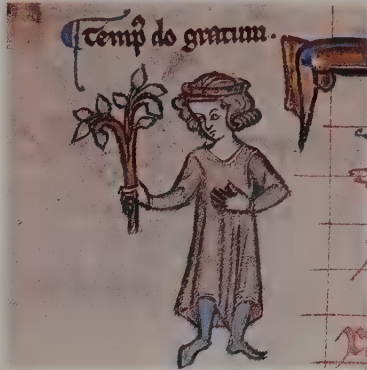 ¶ Temp᷒ do gratum.